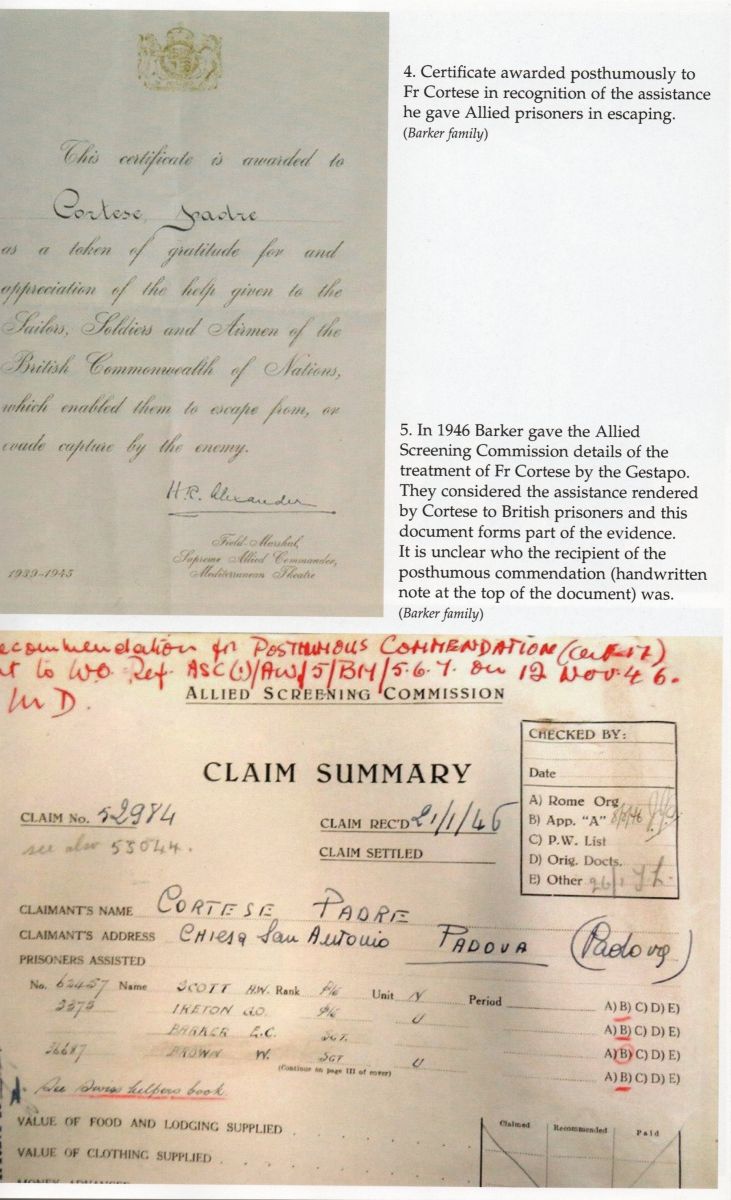 This certificate is awarded to
Cortese, Padre
as a token of gratitude for and
appreciation of the help given to the
Sailors, Soldiers and Airmen of the
British Commonwealth of Nations,
which enabled them to escape from, or
evade capture by the enemy.
H.R. Alexander
Field-Marshal,
Supreme Allied Commander,
Mediterranean Theatre
1939-1945
4. Certificate awarded posthumously to
Fr Cortese in recognition of the assistance
he gave Allied prisoners in escaping.
(Barker family)
5. In 1946 Barker gave the Allied
Screening Commission details of the
treatment of Fr Cortese by the Gestapo.
They considered the assistance rendered
by Cortese to British prisoners and this
document forms part of the evidence.
It is unclear who the recipient of the
posthumous commendation (handwritten
note at the top of the document) was.
(Barker family)
ecommendation for POSTHUMOUS COMMENDATION
to WO Ref. ASC(1)/AW/5/BM/5.6.7. on 12 Nov 46.
ALLIED SCREENING COMMISSION
CLAIM SUMMARY
CHECKED BY:
Date
A) Rome Org
B) App. "A"
C) P.W. List
D) Orig. Docts.
E) Other
CLAIM No. 52984
see also 53044.
CLAIM REC'D 21/1/46
CLAIM SETTLED
CLAIMANT'S NAME CORTESE PADRE
CLAIMANT'S ADDRESS CHIESA San Antonio PADOVA (Padova)
PRISONERS ASSISTED
No. 62457 Name SCOTT H.W. Rank Pte Unit N Period A) B) C) D) E)
IRETON Pte U A) B) C) D) E)
BARKER E.C. SGT. A) B) C) D) E)
BROWN W. SGT U A) B) C) D) E)
(Continue on page III of cover)
See Swiss helpers book
VALUE OF FOOD AND LODGING SUPPLIED
VALUE OF CLOTHING SUPPLIED
Claimed Recommended Paid